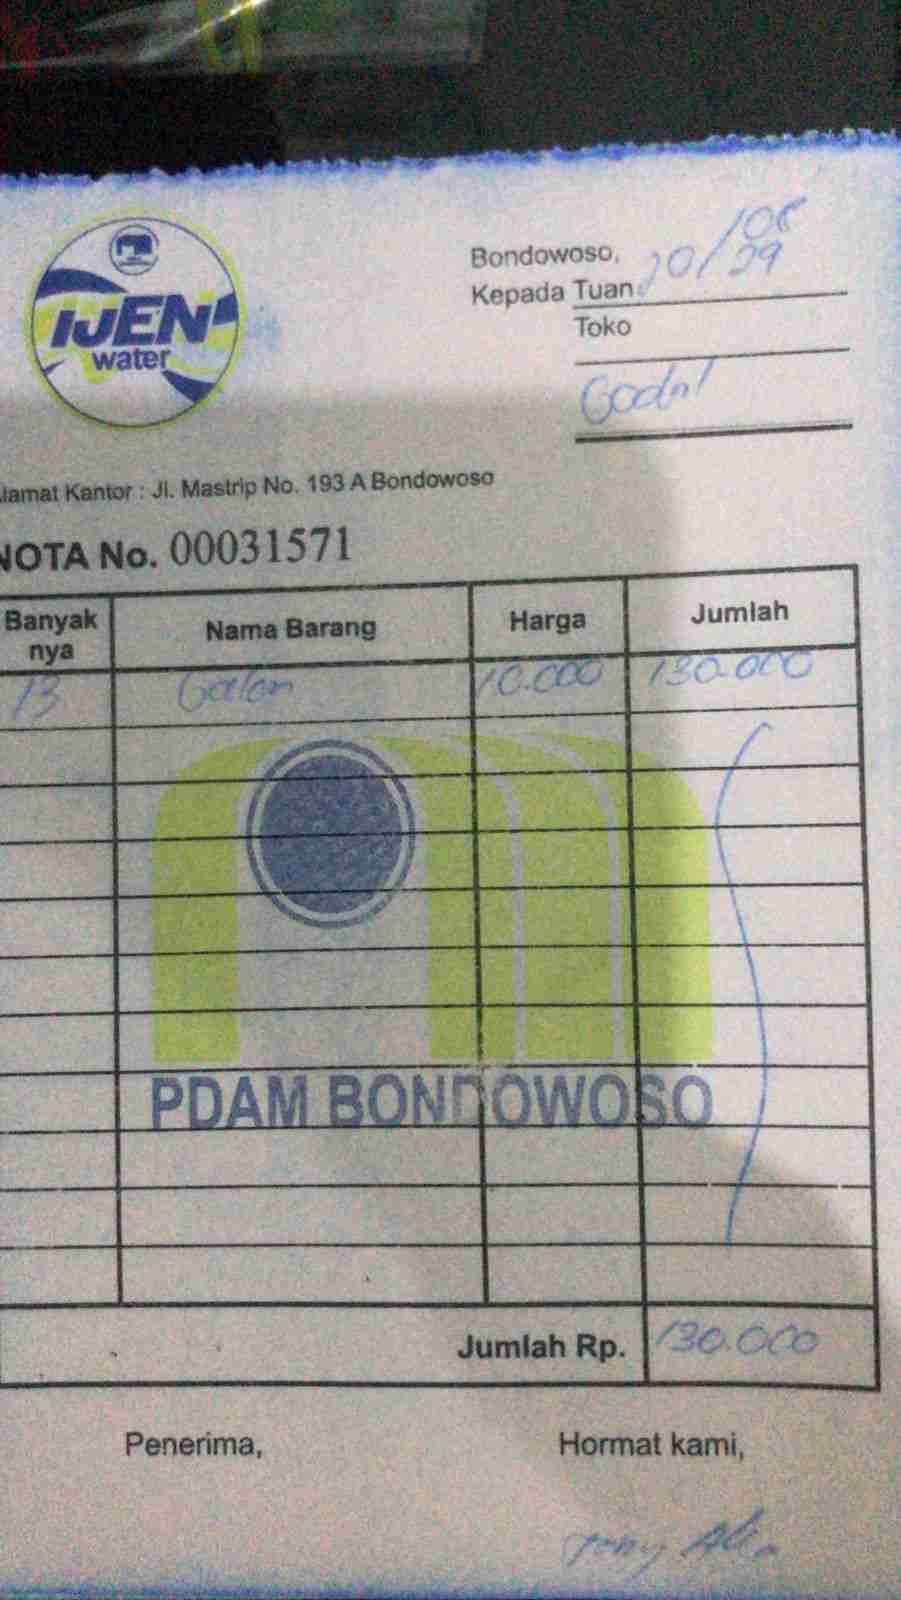 IJEN
water
Bondowoso, 20/08
29
Kepada Tuan
Toko
lamat Kantor : Jl. Mastrip No. 193 A Bondowoso
NOTA No. 00031571
Banyak nya Nama Barang Harga Jumlah
13 Galon 10.000 130.000
PDAM BONDOWOSO
Jumlah Rp. 130.000
Penerima, Hormat kami,